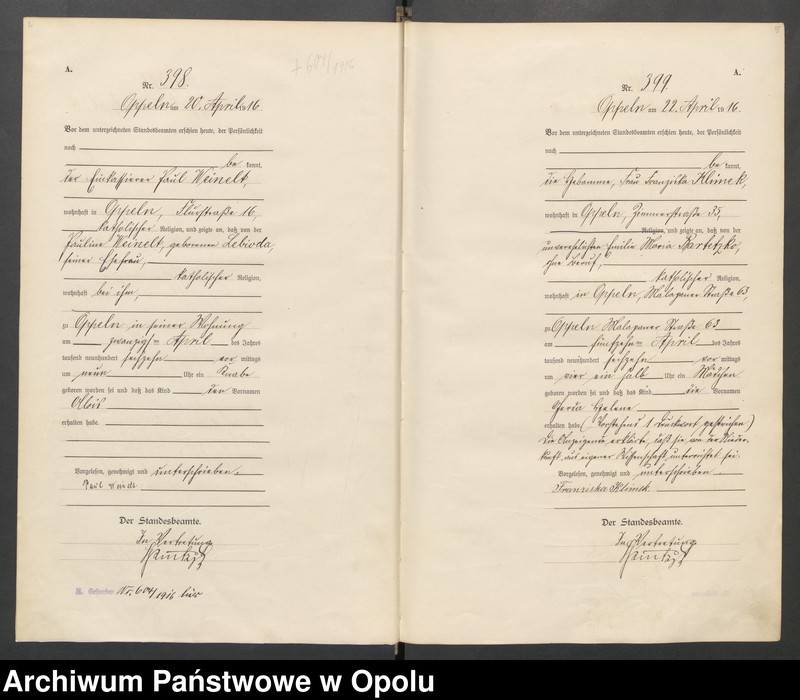 A.
+ 604/1916
Nr. 398.
Oppeln am 20. April 1916.
Vor dem unterzeichneten Standesbeamten erschien heute, der Persönlichkeit
nach
be kannt,
der Einkassierer Paul Weinelt,
wohnhaft in Oppeln, Flurstraße 16,
katholischer Religion, und zeigte an, daß von der
Pauline Weinelt, geborenen Lebioda,
seiner Ehefrau,
katholischer Religion,
wohnhaft bei ihm,
zu Oppeln in seiner Wohnung
am zwanzigsten April des Jahres
tausend neunhundert sechzehn vor mittags
um neun Uhr ein Knabe
geboren worden sei und daß das Kind den Vornamen
Alois
erhalten habe.
Vorgelesen, genehmigt und unterschrieben.
Paul Weinelt
Der Standesbeamte.
In Vertretung
Gestorben Nr. 604/1916 hier
A.
Nr. 399.
Oppeln am 22. April 1916.
Vor dem unterzeichneten Standesbeamten erschien heute, der Persönlichkeit
nach
be kannt,
die Hebamme, Frau Franziska Klimek,
wohnhaft in Oppeln, Zimmerstraße 35,
Religion, und zeigte an, daß von der
unverehelichten Emilie Maria Bartetzko,
ohne Beruf,
katholischer Religion,
wohnhaft in Oppeln, Malapaner Straße 63,
zu Oppeln Malapaner Straße 63
am fünfzehnten April des Jahres
tausend neunhundert sechzehn vor mittags
um vier ein halb Uhr ein Mädchen
geboren worden sei und daß das Kind die Vornamen
Helene
erhalten habe. (Vorstehend 1 Druckwort gestrichen)
Die Anzeigende erklärte, daß sie von der Nieder-
kunft aus eigener Wissenschaft unterrichtet sei.
Vorgelesen, genehmigt und unterschrieben
Franziska Klimek.
Der Standesbeamte.
In Vertretung
Archiwum Państwowe w Opolu